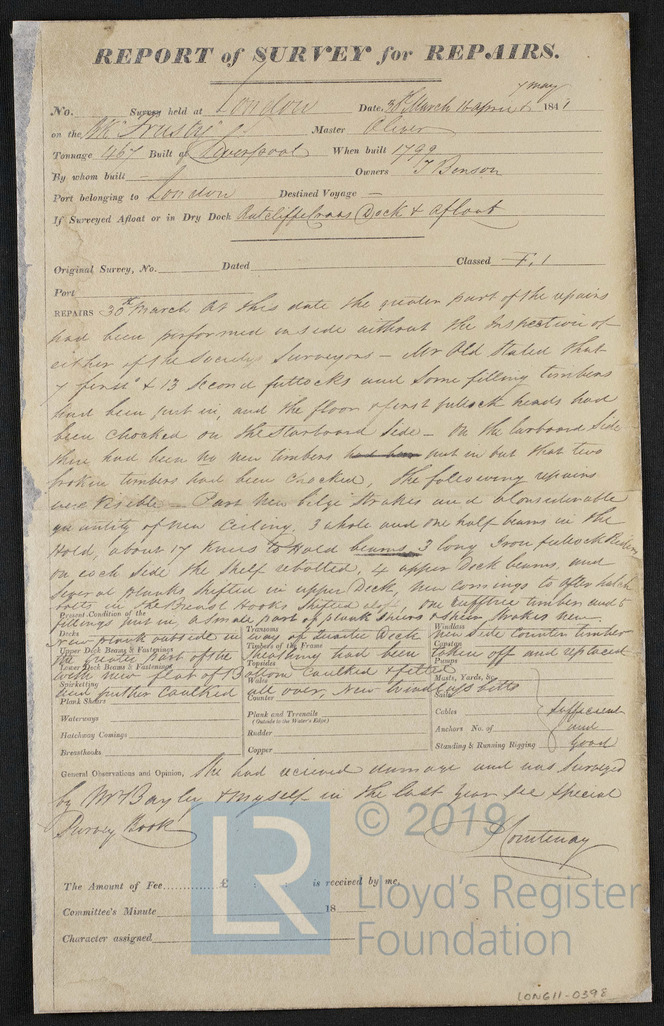 REPORT of SURVEY for REPAIRS.
No. Survey held at London Date, 30th March 16 April & 7 May 1841
on the Bk "Trusty" Master Oliver
Tonnage 467 Built at Liverpool When built 1799
By whom built — Owners T Benson
Port belonging to London Destined Voyage —
If Surveyed Afloat or in Dry Dock Dock & Afloat
Original Survey, No. Dated Classed F. 1
Port
REPAIRS 30th March At this date the greater part of the repairs
had been performed inside without the Inspection of
either of the Society's Surveyors — Mr Old stated that
7 first & 13 second futtocks and some filling timbers
had been put in, and the floor & first futtock heads had
been chocked on the Starboard Side — On the larboard Side
there had been no new timbers had been put in but that two
broken timbers had been chocked, the following repairs
were visible — Part new bilge strakes and a considerable
quantity of new ceiling, 3 whole and one half beams in the
Hold, about 17 knees to Hold beams, 3 long Iron futtock Riders
on each side the shelf rebolted, 4 upper Deck beams, and
several planks shifted in upper Deck, new comings to after hatch
bolts in the Breast Hooks shifted also, one timber and 5
fillings put in, a small part of plank sheers & sheer strakes new
Present Condition of the
Decks
Transoms
Windlass
new plank outside in way of Deck new side Counter timber
Upper Deck Beams & Fastenings
Timbers of the Frame
Capstan
the greater part of the sheathing had been taken off and replaced
Lower Deck Beams & Fastenings
Topsides
Pumps
with new flat of bottom caulked & felted
Spirketting
Wales
Masts, Yards, &c.
and further caulked all over, New Windlass bitts
Plank Sheers
Counter
Sails
Waterways
Plank and Treenails
(Outside to the Water's Edge)
Cables sufficient
Hatchway Comings
Rudder
Anchors No. of and
Breasthooks
Copper
Standing & Running Rigging good
General Observations and Opinion, She had recieved damage and was surveyed
by Mr Bayley & myself in the last year see Special
Survey Book
Courtenay
The Amount of Fee............£ : : is received by me,
Committee's Minute 18
Character assigned
LR
© 2019
Lloyd's Register
Foundation
LON611-0398